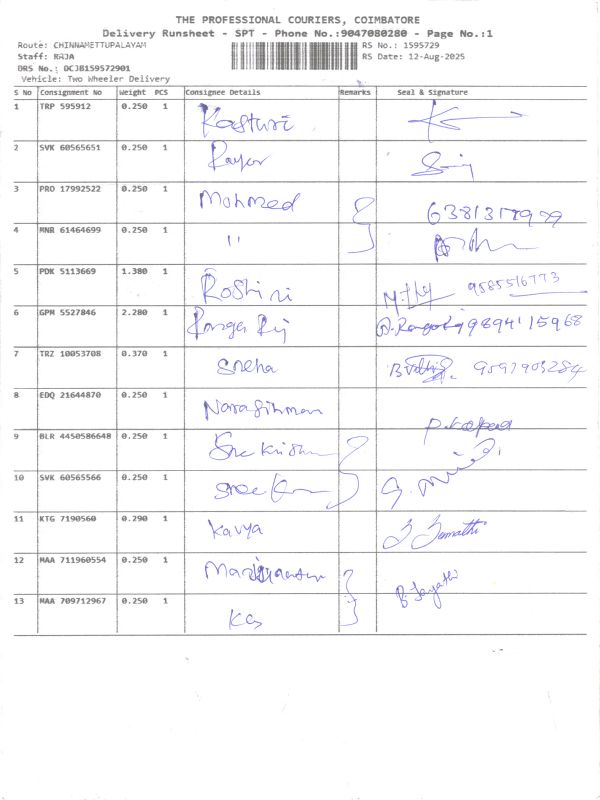 THE PROFESSIONAL COURIERS, COIMBATORE
Delivery Runsheet - SPT - Phone No.:9047080280 - Page No.:1
Route: CHINNAMETTUPALAYAM RS No.: 1595729
Staff: RAJA RS Date: 12-Aug-2025
DRS No.: DCJB159572901
Vehicle: Two Wheeler Delivery
S No Consignment No Weight PCS Consignee Details Remarks Seal & Signature
1 TRP 595912 0.250 1 Kasturi
2 SVK 60565651 0.250 1
3 PRO 17992522 0.250 1 Mohmed
4 MNR 61464699 0.250 1 11
5 PDK 5113669 1.380 1 Roshini 9585516773
6 GPM 5527846 2.280 1 9894115968
7 TRZ 10053708 0.370 1 Sneha
8 EDQ 21644870 0.250 1 Narasihman
9 BLR 4450586648 0.250 1
10 SVK 60565566 0.250 1
11 KTG 7190560 0.290 1 Kavya
12 MAA 711960554 0.250 1
13 MAA 709712967 0.250 1